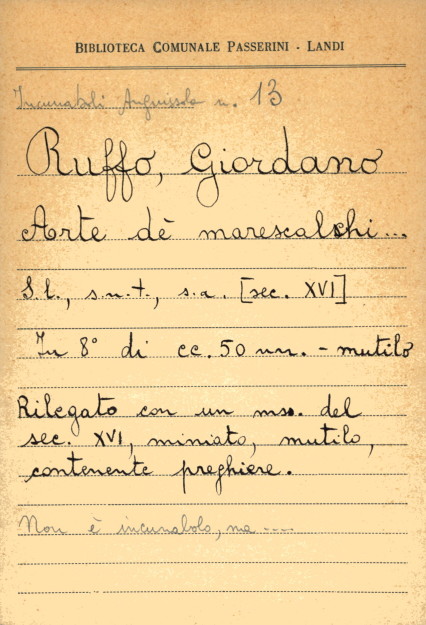 BIBLIOTECA COMUNALE PASSERINI - LANDI
Incunaboli Anguissola n. 13
Ruffo, Giordano
Arte dè marescalchi...
S.l., s.n.t., s.a. [sec. XVI]
In 8° di cc. 50 nn. - mutilo
Rilegato con un ms. del
sec. XVI, miniato, mutilo,
contenente preghiere.
Non è incunabolo, ma ....